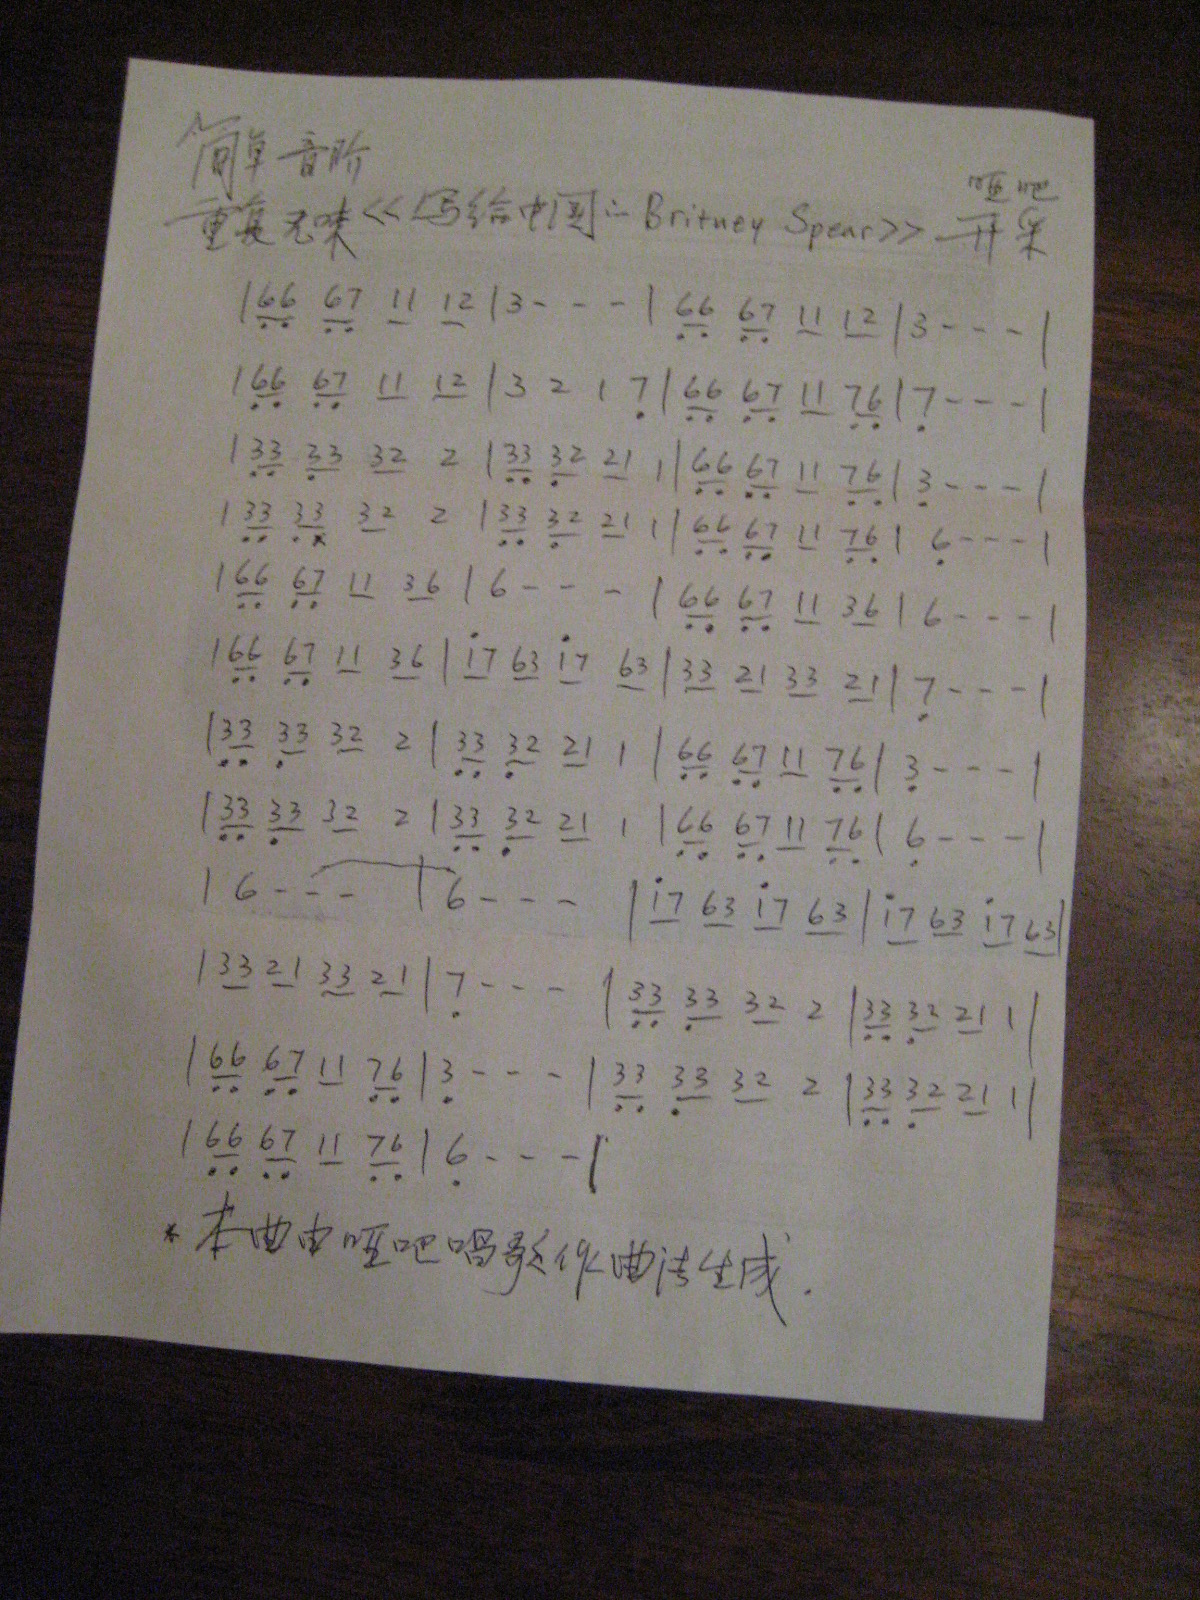 简单音阶
重复无味<<写给中国的Britney Spear>> 哑吧
开朵
|66 67 11 12|3---|66 67 11 12|3---|
|66 67 11 12|3 2 1 7|66 67 11 76|7---|
|33 33 32 2|33 32 21 1|66 67 11 76|3---|
|33 33 32 2|33 32 21 1|66 67 11 76|6---|
|66 67 11 36|6---|66 67 11 36|6---|
|66 67 11 36|i7 63 i7 63|33 21 33 21|7---|
|33 33 32 2|33 32 21 1|66 67 11 76|3---|
|33 33 32 2|33 32 21 1|66 67 11 76|6---|
|6---|6---|i7 63 i7 63|i7 63 i7 63|
|33 21 33 21|7---|33 33 32 2|33 32 21 1|
|66 67 11 76|3---|33 33 32 2|33 32 21 1|
|66 67 11 76|6---|
*本曲由哑吧唱歌作曲法生成.